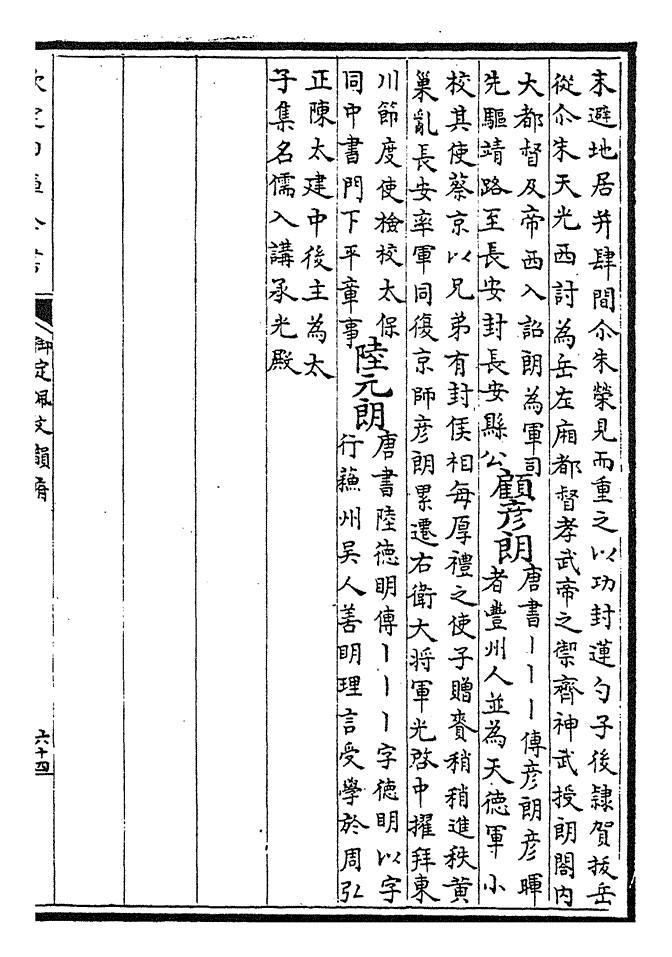 末避地居并肆間尒朱榮見而重之以功封蓮勺子後隷賀拔岳
從尒朱天光西討為岳左廂都督孝武帝之禦齊神武授朗閤内
大都督及帝西入詔朗為軍司
先驅靖路至長安封長安縣公
顧彦朗
唐書丨丨丨傳彦朗彦暉
者豐州人並為天徳軍小
校其使蔡京以兄弟有封侯相每厚禮之使子贈賚稍稍進秩黄
巢亂長安率軍同復京師彦朗累遷右衛大将軍光啓中擢拜東
川節度使檢校太保
同中書門下平章事
陸元朗
唐書陸徳明傳丨丨丨字徳明以字
行蘇州吳人善明理言受學於周弘
正陳太建中後主為太
子集名儒入講承光殿
欽定四庫全書
御定佩文韻府
六十四